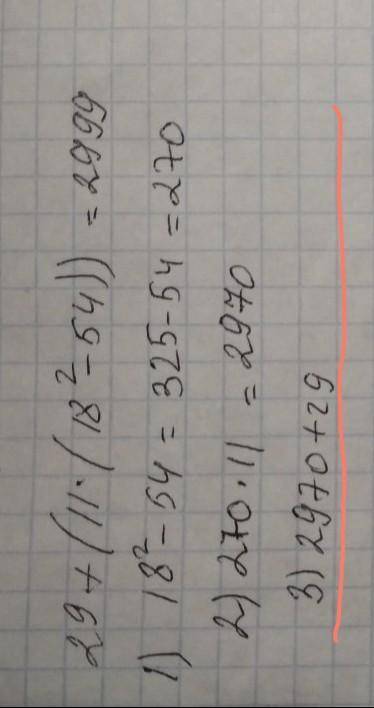 29 + (11 · (18² - 54)) = 2999
1) 18² - 54 = 325 - 54 = 270
2) 270 · 11 = 2970
3) 2970 + 29